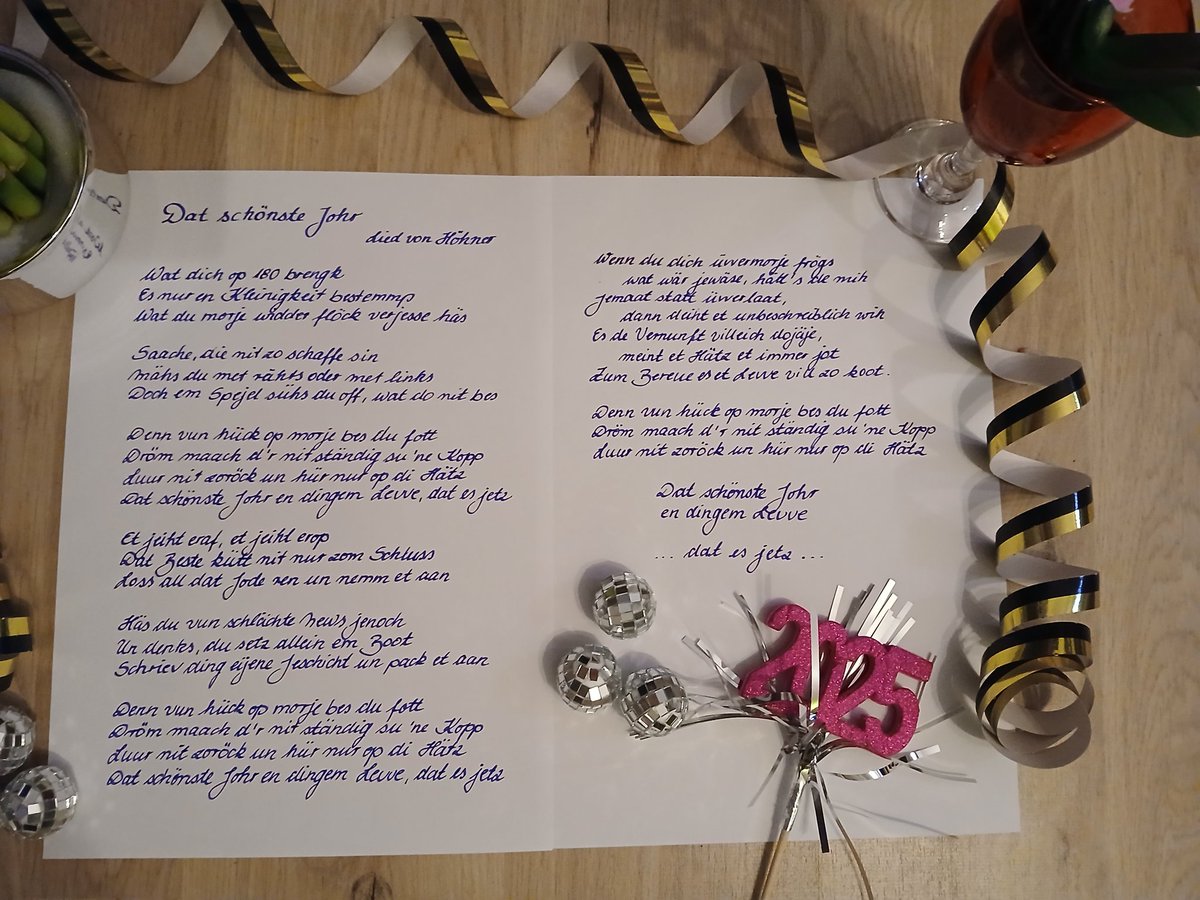 Dat schönste Johr
Lied von Höhner
Wat dich op 180 brengk
Es nur en Kleinigkeit bestemmp
Wat du morje widder flöck verjesse häs
Saache, die nit zo schaffe sin
Mähs du met rähts oder met links
Doch em Spejel sühs du off, wat do nit bes
Denn vun hück op morje bes du fott
Dröm maach d'r nit ständig su 'ne Kopp
Luur nit zoröck un hür nur op di Hätz
Dat schönste Johr en dingem Levve, dat es jetz
Et jeiht eraf, et jeiht erop
Dat Beste kütt nit nur zom Schluss
Loss all dat Jode ren un nemm et aan
Häs du vun schlächte News jenoch
Un denks, du setz allein em Boot
Schriev ding eijene Jeschicht un pack et aan
Denn vun hück op morje bes du fott
Dröm maach d'r nit ständig su 'ne Kopp
Luur nit zoröck un hür nur op di Hätz
Dat schönste Johr en dingem Levve, dat es jetz
Wenn du dich üvvermorje frögs
wat wär jewäse, hätt's de mih
jemaat statt üvverlaat,
dann deiht et unbeschreiblich wih
Es de Vernunft villeich dojäje,
meint et Hätz et immer jot
Zum Bereue es et Levve vill zo koot.
Denn vun hück op morje bes du fott
Dröm maach d'r nit ständig su 'ne Kopp
Luur nit zoröck un hür nur op di Hätz
Dat schönste Johr
en dingem Levve
... dat es jetz ...
2025